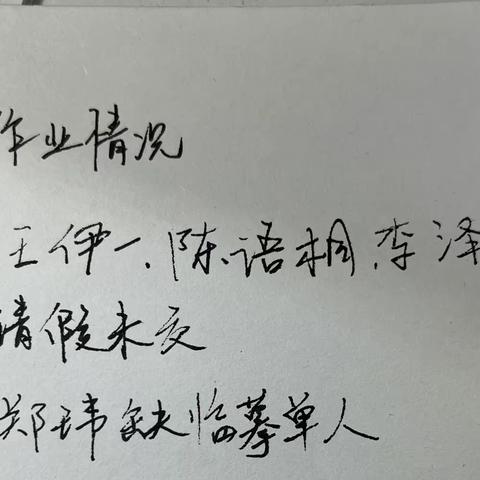 作业情况
王伊一、陈语桐、李泽
请假未交
郑玮缺临摹单人